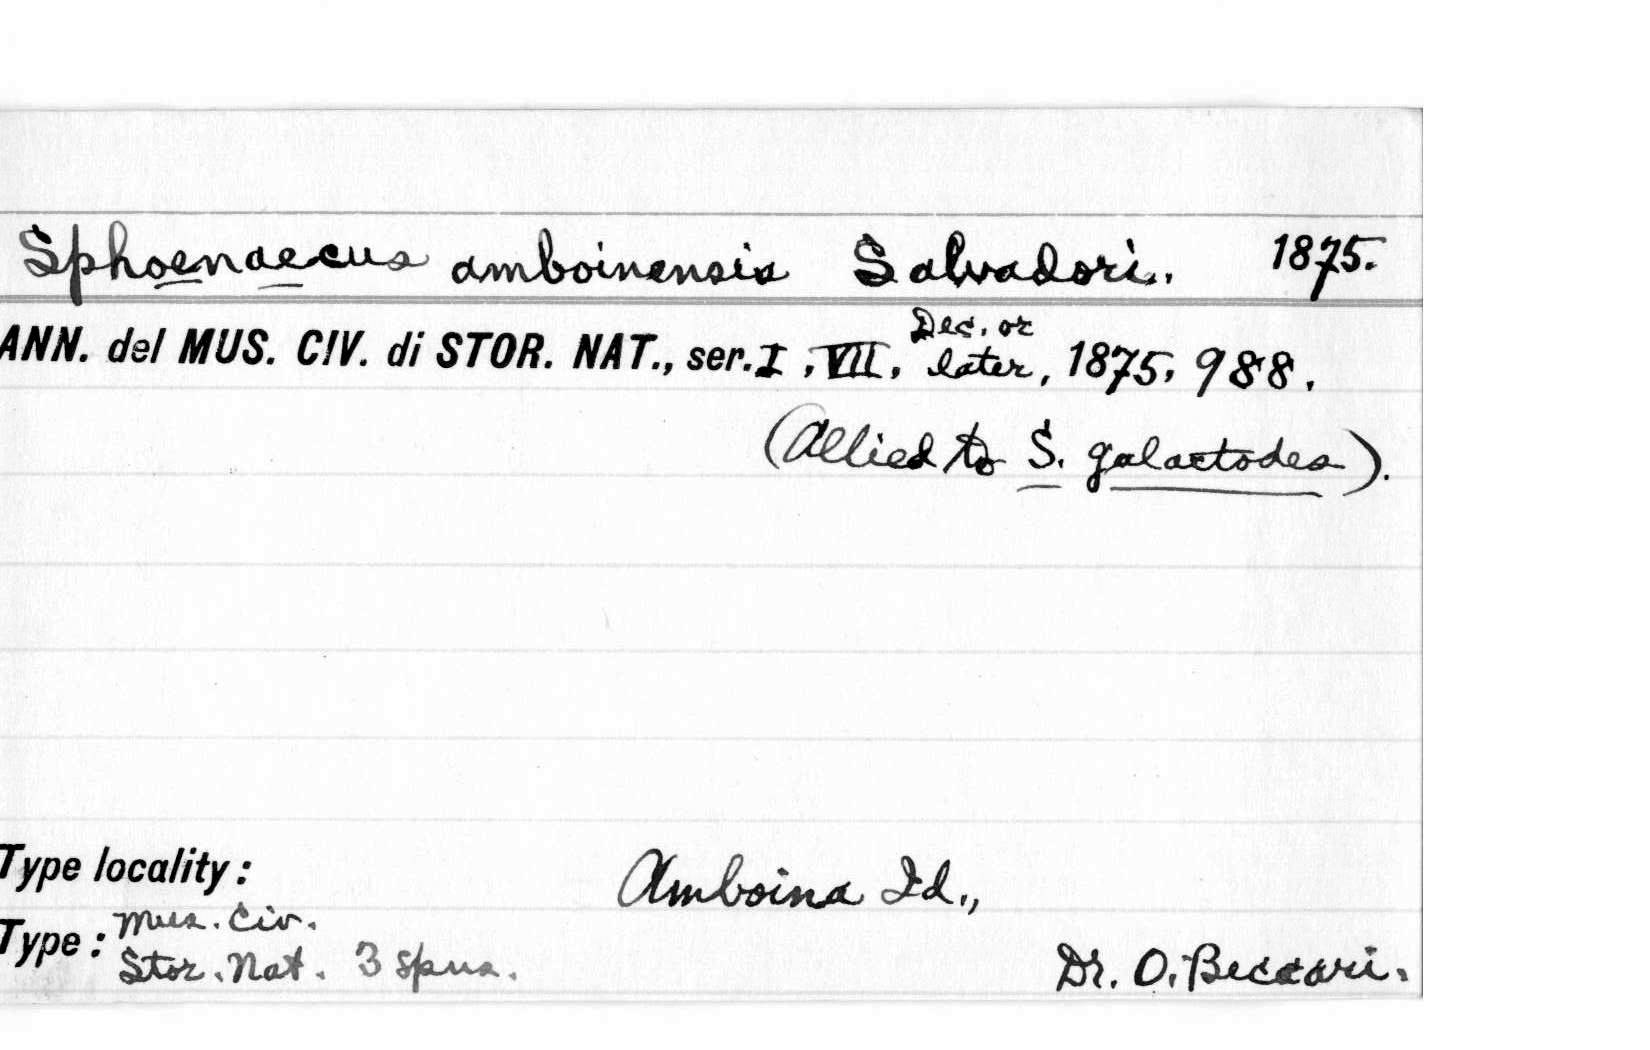 Sphoenoecus amboinensis Salvadori. 1875.
ANN. del MUS. CIV. di STOR. NAT., ser. I, VII, Dec. or later, 1875, 988.
(Allied to S. galactodes).
Type locality: Amboina Id.,
Type: Mus. Civ.
Stor. Nat. 3 spns. Dr. O. Beccari.